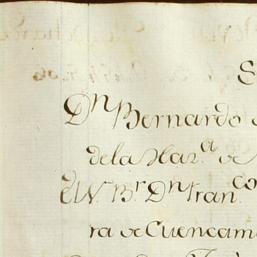 S
Dn Bernardo
de la Haz.a de
el V. Br Dn Fran.co
ra de Cuencam